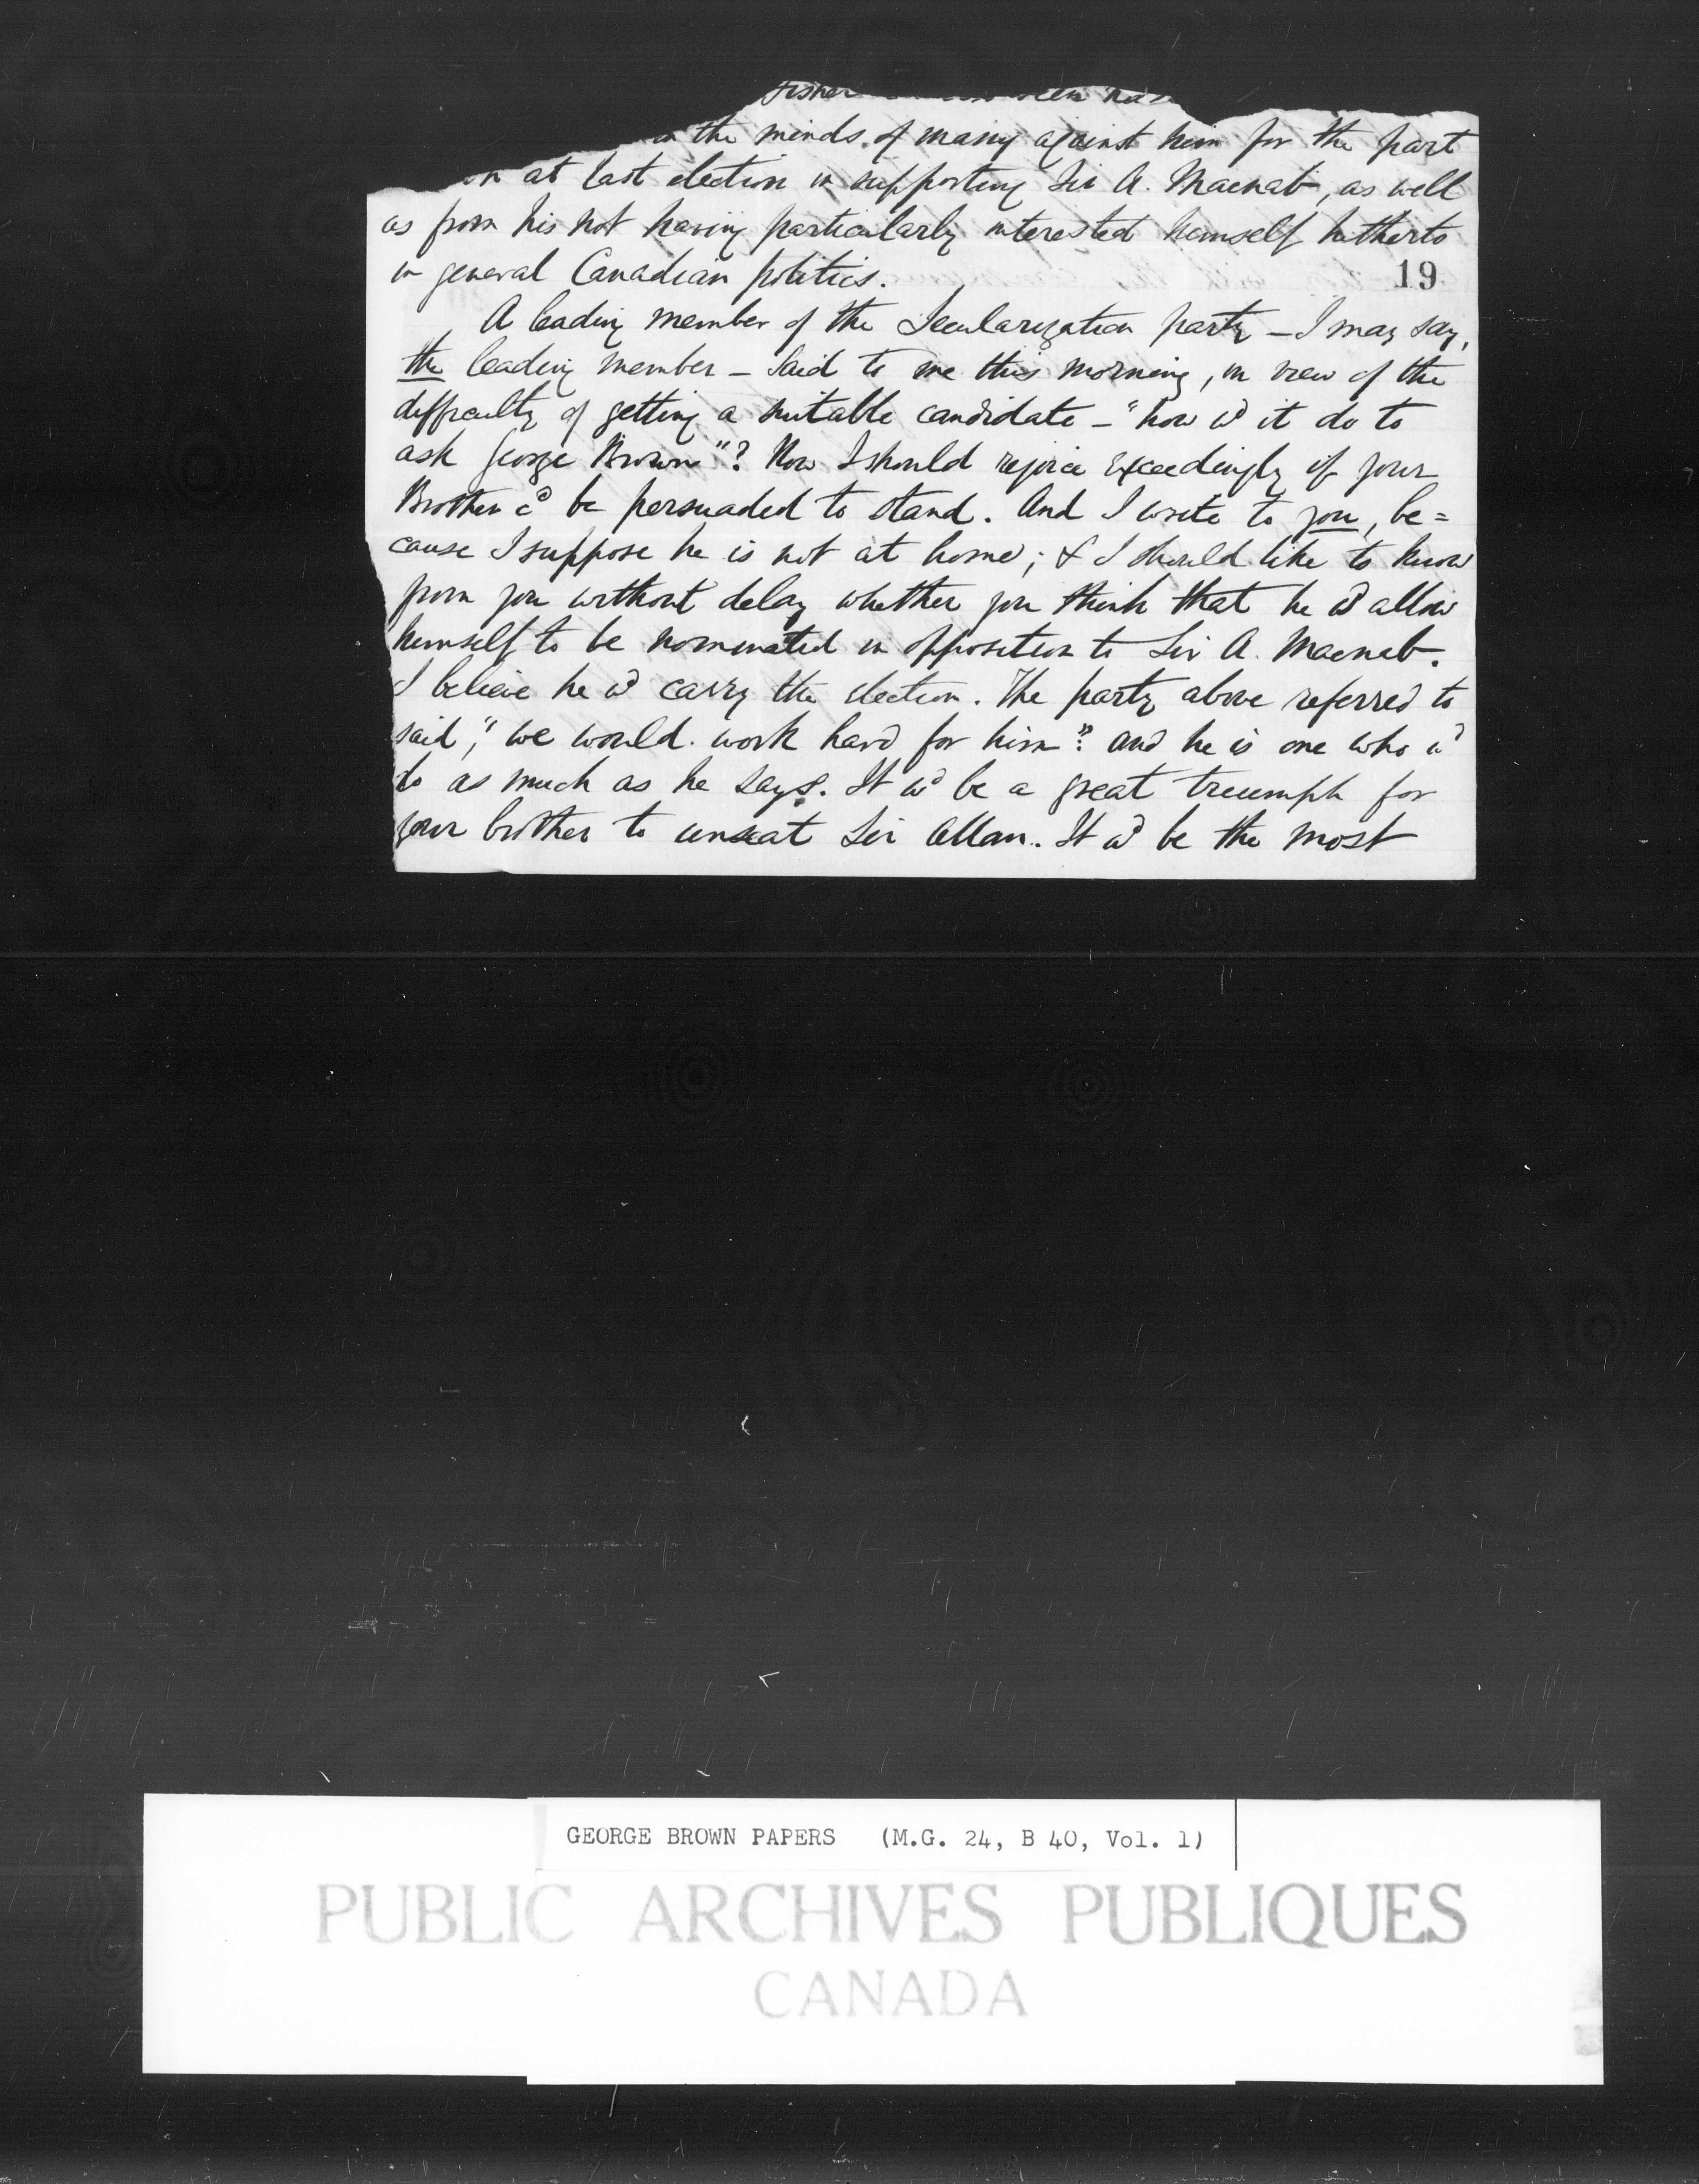 Fisher
the minds of many against him for the part
at last election in supporting Sir A. Macnab, as well
as from his not having particularly interested himself hitherto
in general Canadian politics.
19
A leading member of the Secularization party – I may say,
the leading member – said to me this morning, in view of the
difficulty of getting a suitable candidate – "how wd it do to
ask George Brown"? Now I should rejoice exceedingly if your
Brother cd be persuaded to stand. And I write to you, be=
cause I suppose he is not at home; & I should like to know
from you without delay whether you think that he wd allow
himself to be nominated in opposition to Sir A. Macnab.
I believe he wd carry the election. The party above referred to
said, "we would work hard for him": and he is one who wd
do as much as he says. It wd be a great triumph for
your brother to unseat Sir Allan. It wd be the most
GEORGE BROWN PAPERS (M.G. 24, B 40, Vol. 1)
PUBLIC ARCHIVES PUBLIQUES
CANADA